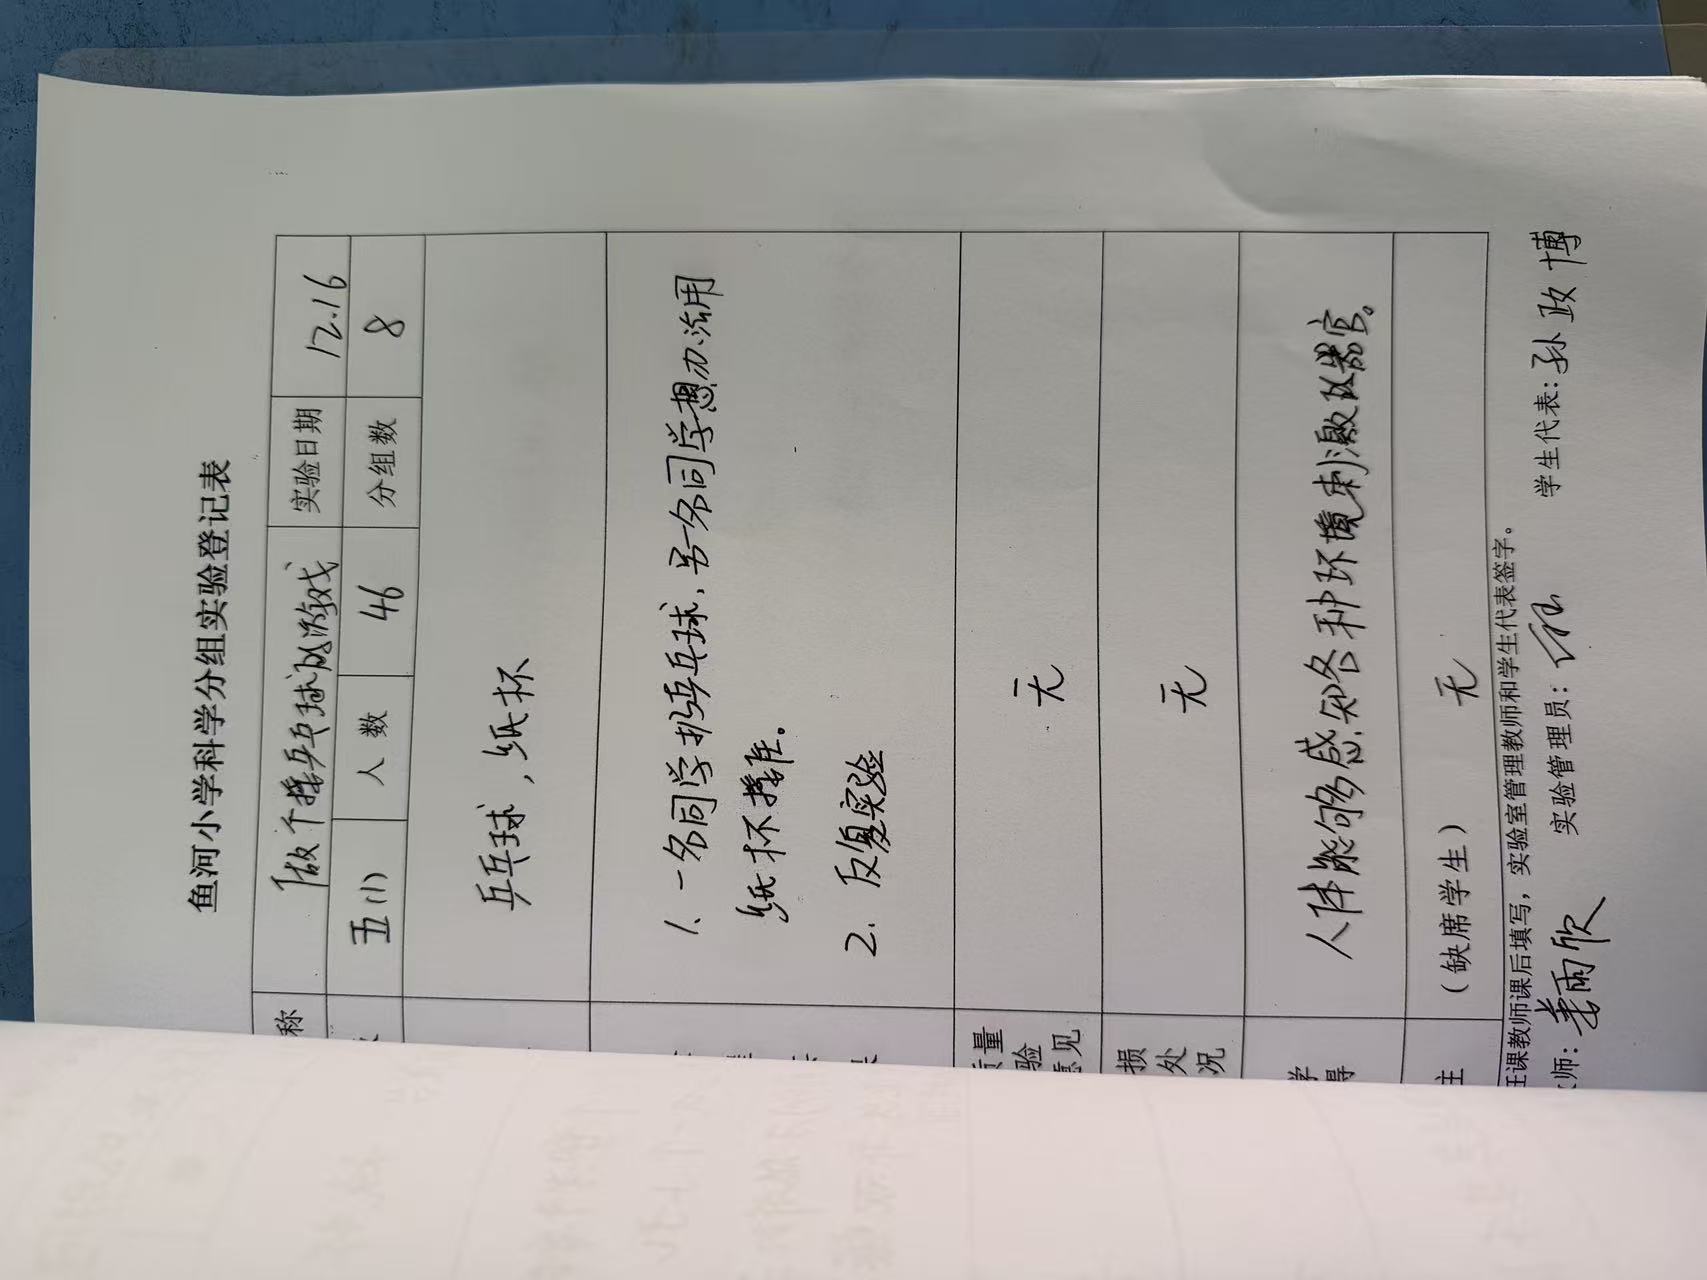 鱼河小学科学分组实验登记表
称 做个接乒乓球的游戏 实验日期 12.16
五(1) 人数 46 分组数 8
乒乓球,纸杯
1、一名同学扔乒乓球、另一名同学想办法用
纸杯接住。
2. 反复实验
质量
验
意见
无
损
处
况
无
学
得
人体能够感知各种环境刺激以器官。
主
(缺席学生) 无
任课教师课后填写,实验室管理教师和学生代表签字。
师: 雨欣 实验管理员: 学生代表: 孙政博